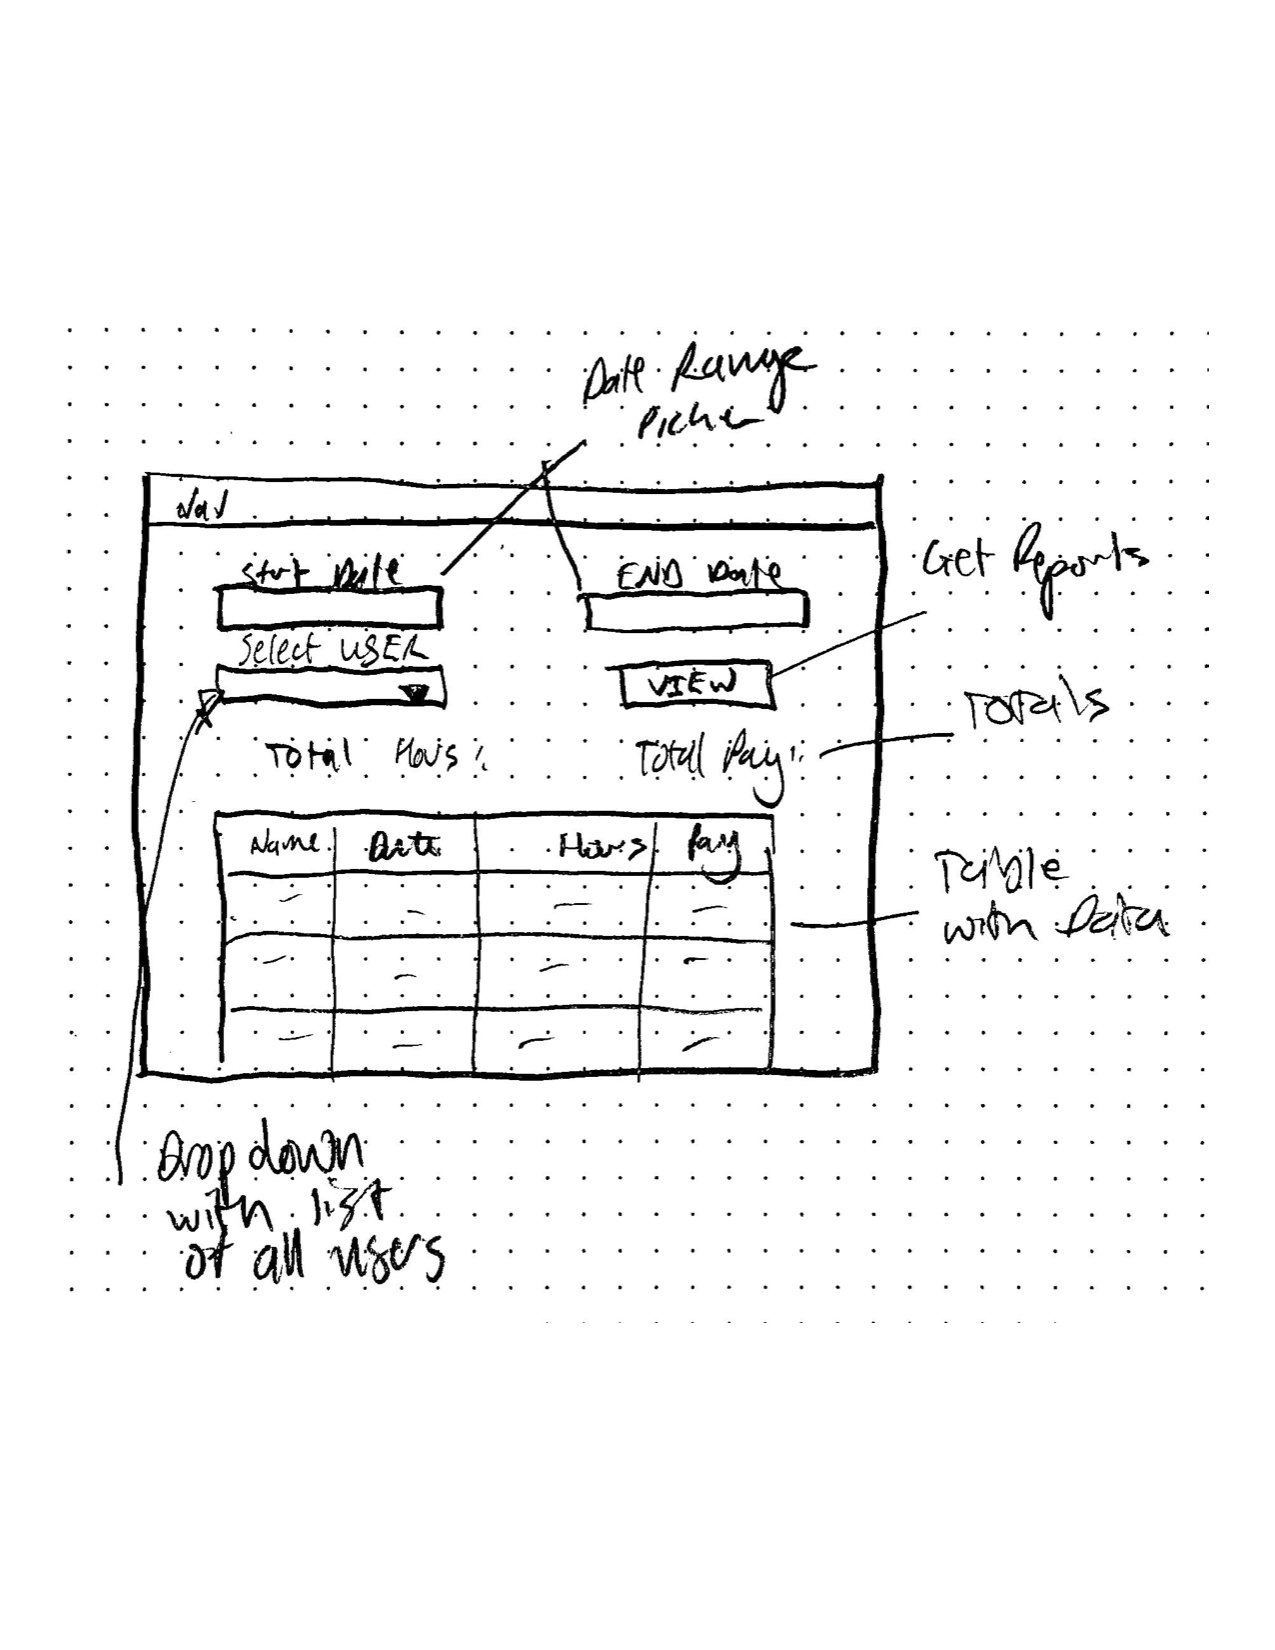 Date Range
Picker
Nav
Start Date
END Date
Get Reports
Select USER
VIEW
Totals
Total Hours:
Total Pay:
Name Date Hours Pay
Table
with Data
Dropdown
with list
of all users